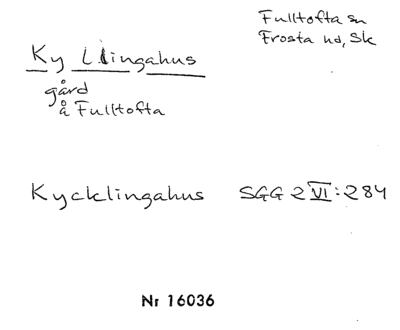 Fulltofta sn
Frosta hd, Sk
Ky Llingahus
gård
å Fulltofta
Kycklingahus SGG 2 VI:284
Nr 16036